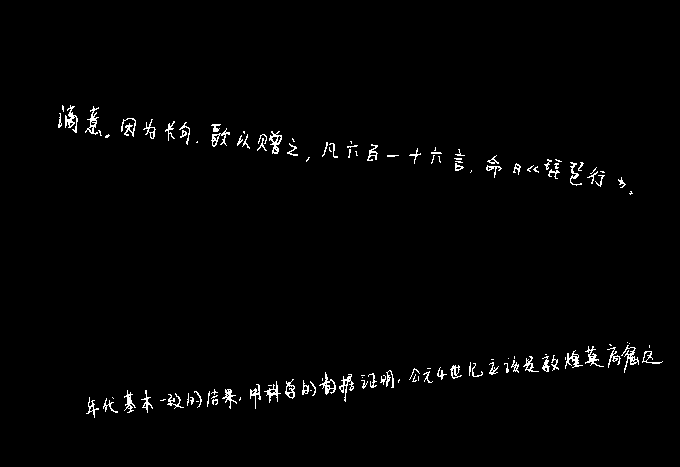 滴意。因为长句，歌以赠之，凡六百一十六言，命曰《琵琶行》。
年代基本一致的结果，用科学的数据证明，公元4世纪应该是敦煌莫高窟这